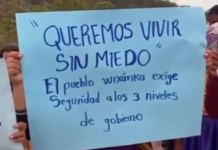 "QUEREMOS VIVIR
SIN MIEDO"
El pueblo wixárika exige
Seguridad a los 3 niveles
de gobierno